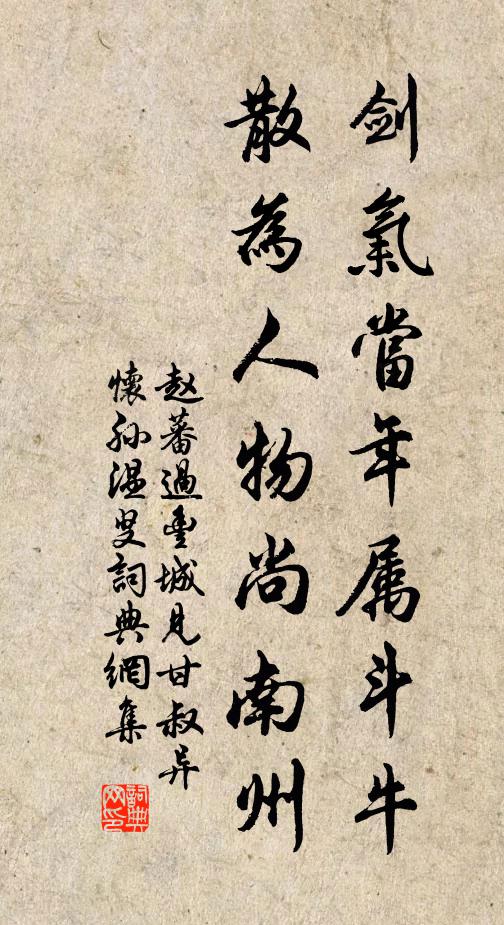 剑氣當年属斗牛
散為人物尚南州
赵蕃過豊城見甘叔异
懷孙温叟詞典網集
詞典网印